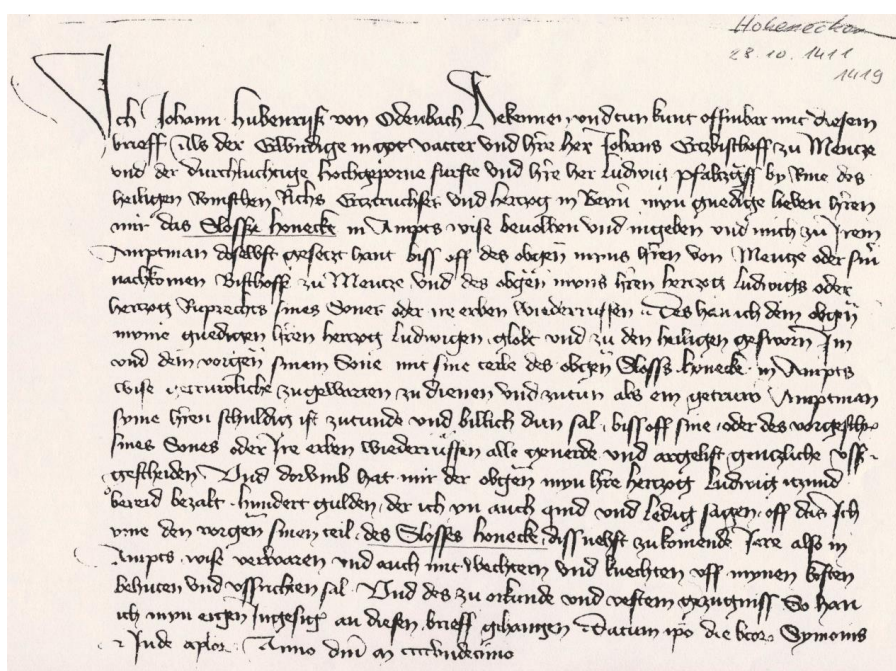 Hohenecken
28.10.1411
1419
Ich Johann Hubenriß von Odenbach Bekennen und tun kunt offinbar mit diesem
brieff Als der Erwirdige in got vatter und h're her Johans Ertzbisthoff zu Mentze
und der durchluchtige hochgeporne furste und h're her Ludwig pfaltzgff by Rine des
heiligen Romschen Richs Ertztruchses und hertzog in Beyn myn gnedige lieben h'ren
mir das Slosse honecke in Ampts wise bevolhen und ingeben und mich zu Irem
Amptman doselbst gesetzt hant biss off des obgen myns h'ren von Mentze oder sin
nachkomen Bisthoff zu Mentze und des obgen myns h'ren hertzog Ludwigs oder
hertzog Ruprechts sines Sones oder ire erben wiederruffen Des han ich dem obgen
myme gnedigen h'ren hertzog Ludwigen globt und zu den heiligen gesworn Im
und dem vorgen sinem Sone mit sine teile des obgen Sloss honecke in Ampts
wise getruwliche zugewarten zu dienen und zutun als ein getruwe Amptman
syme h'ren schuldig ist zutunde und billich dun sal biss off sine oder des
sines Sones oder Ire erben wiederruffen alle geuerde und argelist gentzliche ussz
gescheiden Und dorumb hat mir der obgen myn h're hertzog Ludwig itzund
bereid bezalt hundert gulden der ich yn auch quid und ledig sagen off das Ich
yme den vorgen sinen teil des Slosses honecke diss nehst zukomende Jare also in
Ampts wise verwaren und auch mit wechtern und knechten uff mynen kosten
behuten und ussrichten sal Und des zu orkunde und vestem gezugniss So han
ich myn eigen Ingesig an diesen brieff gehangen Datum ipo die btor Symonis
& Jude aplor Anno dni m ccccundecimo